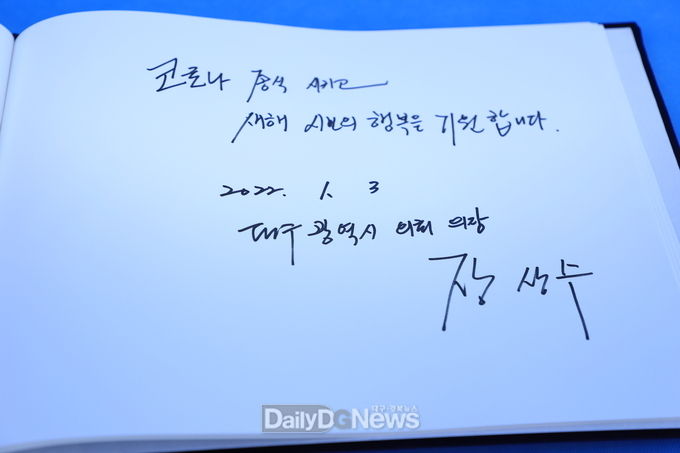 코로나 종식 시키고
새해 시민의 행복을 기원 합니다.
2022. 1. 3
대구 광역시 의회 의장
장 상수
대구·경북뉴스
DailyDGNews